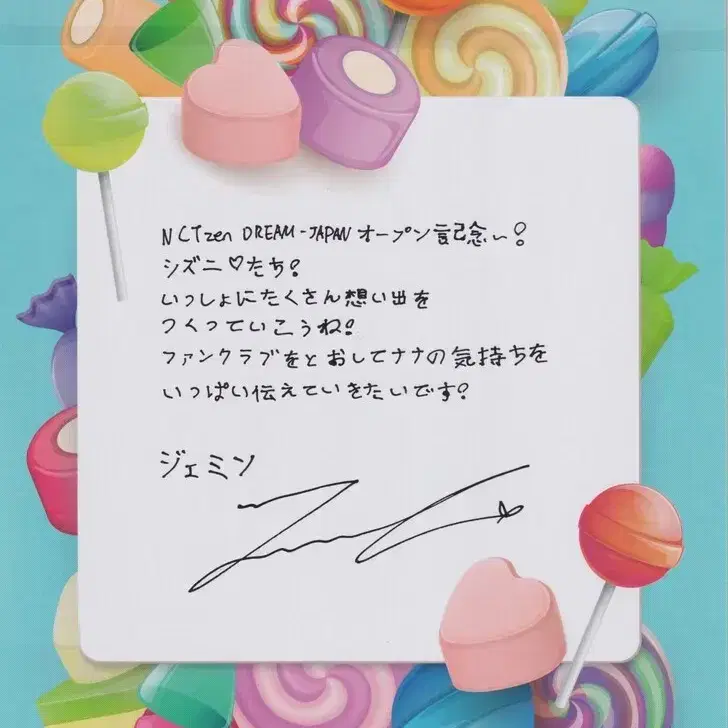 NCTzen DREAM-JAPAN オープン記念い!
シズニ♡たち!
いっしょにたくさん想い出を
つくっていこうね!
ファンクラブをとおしてナナの気持ちを
いっぱい伝えていきたいです!
ジェミン